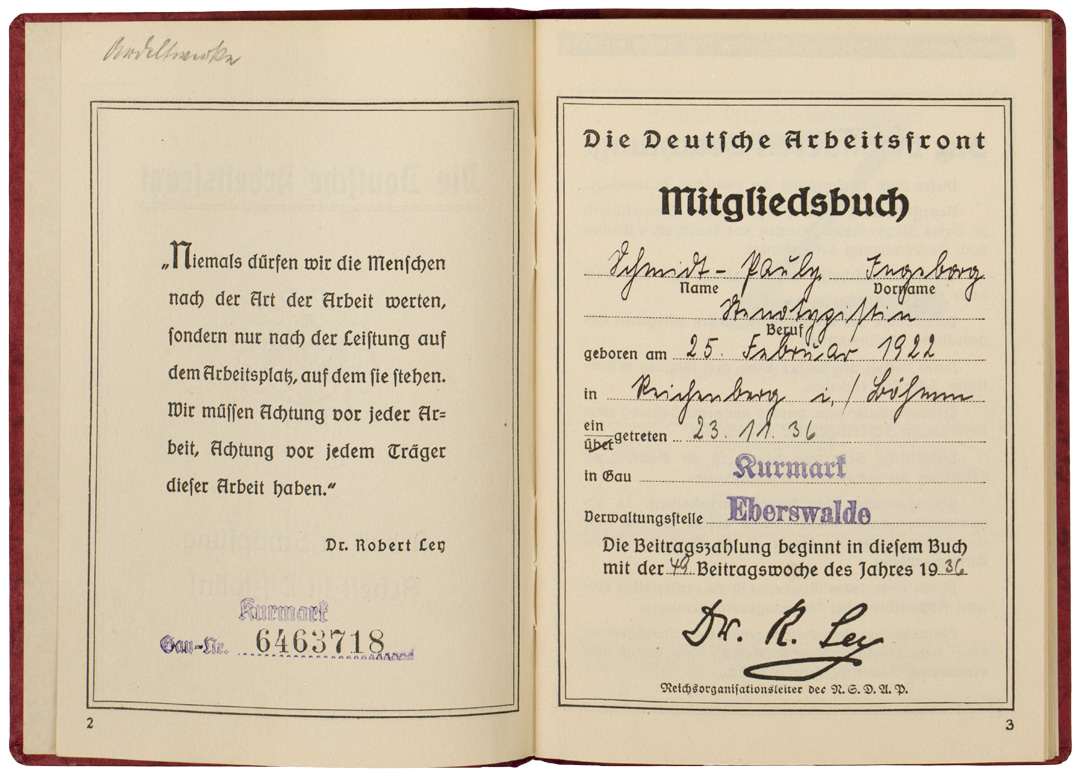 Ardeltwerke
„Niemals dürfen wir die Menschen
nach der Art der Arbeit werten,
sondern nur nach der Leistung auf
dem Arbeitsplatz, auf dem sie stehen.
Wir müssen Achtung vor jeder Ar=
beit, Achtung vor jedem Träger
dieser Arbeit haben.“
Dr. Robert Ley
Kurmark
Gau-Nr. 6463718
2
Die Deutsche Arbeitsfront
Mitgliedsbuch
Schmidt-Pauly Ingeborg
Name Vorname
Stenotypistin
Beruf
geboren am 25. Februar 1922
in Reichenberg i./Böhmen
ein
übergetreten 23. 11. 36
in Gau Kurmark
Verwaltungsstelle Eberswalde
Die Beitragszahlung beginnt in diesem Buch
mit der 49 Beitragswoche des Jahres 1936
Dr. R. Ley
Reichsorganisationsleiter der N.S.D.A.P.
3